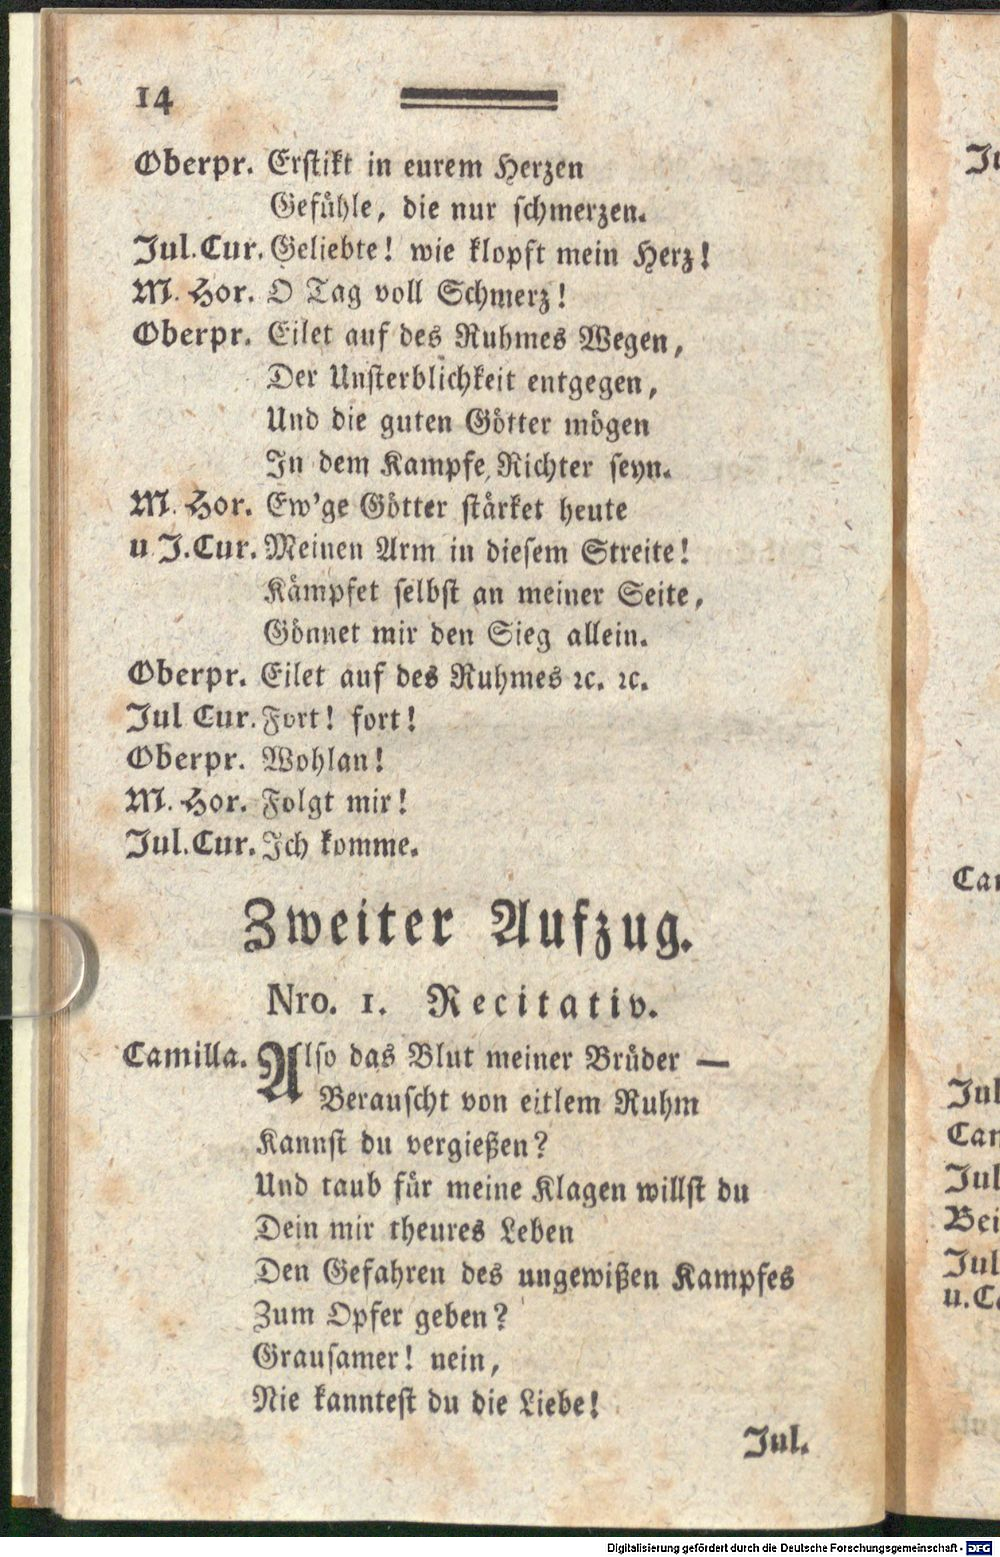 14
Oberpr. Erstikt in eurem Herzen
Gefühle, die nur schmerzen.
Jul. Cur. Geliebte! wie klopft mein Herz!
M. Hor. O Tag voll Schmerz!
Oberpr. Eilet auf des Ruhmes Wegen,
Der Unsterblichkeit entgegen,
Und die guten Götter mögen
In dem Kampfe Richter seyn.
M. Hor. Ew'ge Götter stärket heute
u J. Cur. Meinen Arm in diesem Streite!
Kämpfet selbst an meiner Seite,
Gönnet mir den Sieg allein.
Oberpr. Eilet auf des Ruhmes ꝛc. ꝛc.
Jul Cur. Fort! fort!
Oberpr. Wohlan!
M. Hor. Folgt mir!
Jul. Cur. Ich komme.
Zweiter Aufzug.
Nro. 1. Recitativ.
Camilla. Also das Blut meiner Brüder —
Berauscht von eitlem Ruhm
Kannst du vergießen?
Und taub für meine Klagen willst du
Dein mir theures Leben
Den Gefahren des ungewißen Kampfes
Zum Opfer geben?
Grausamer! nein,
Nie kanntest du die Liebe!
Jul.
Jul
Can
Jul
Bei
Jul
Digitalisierung gefördert durch die Deutsche Forschungsgemeinschaft - DFG